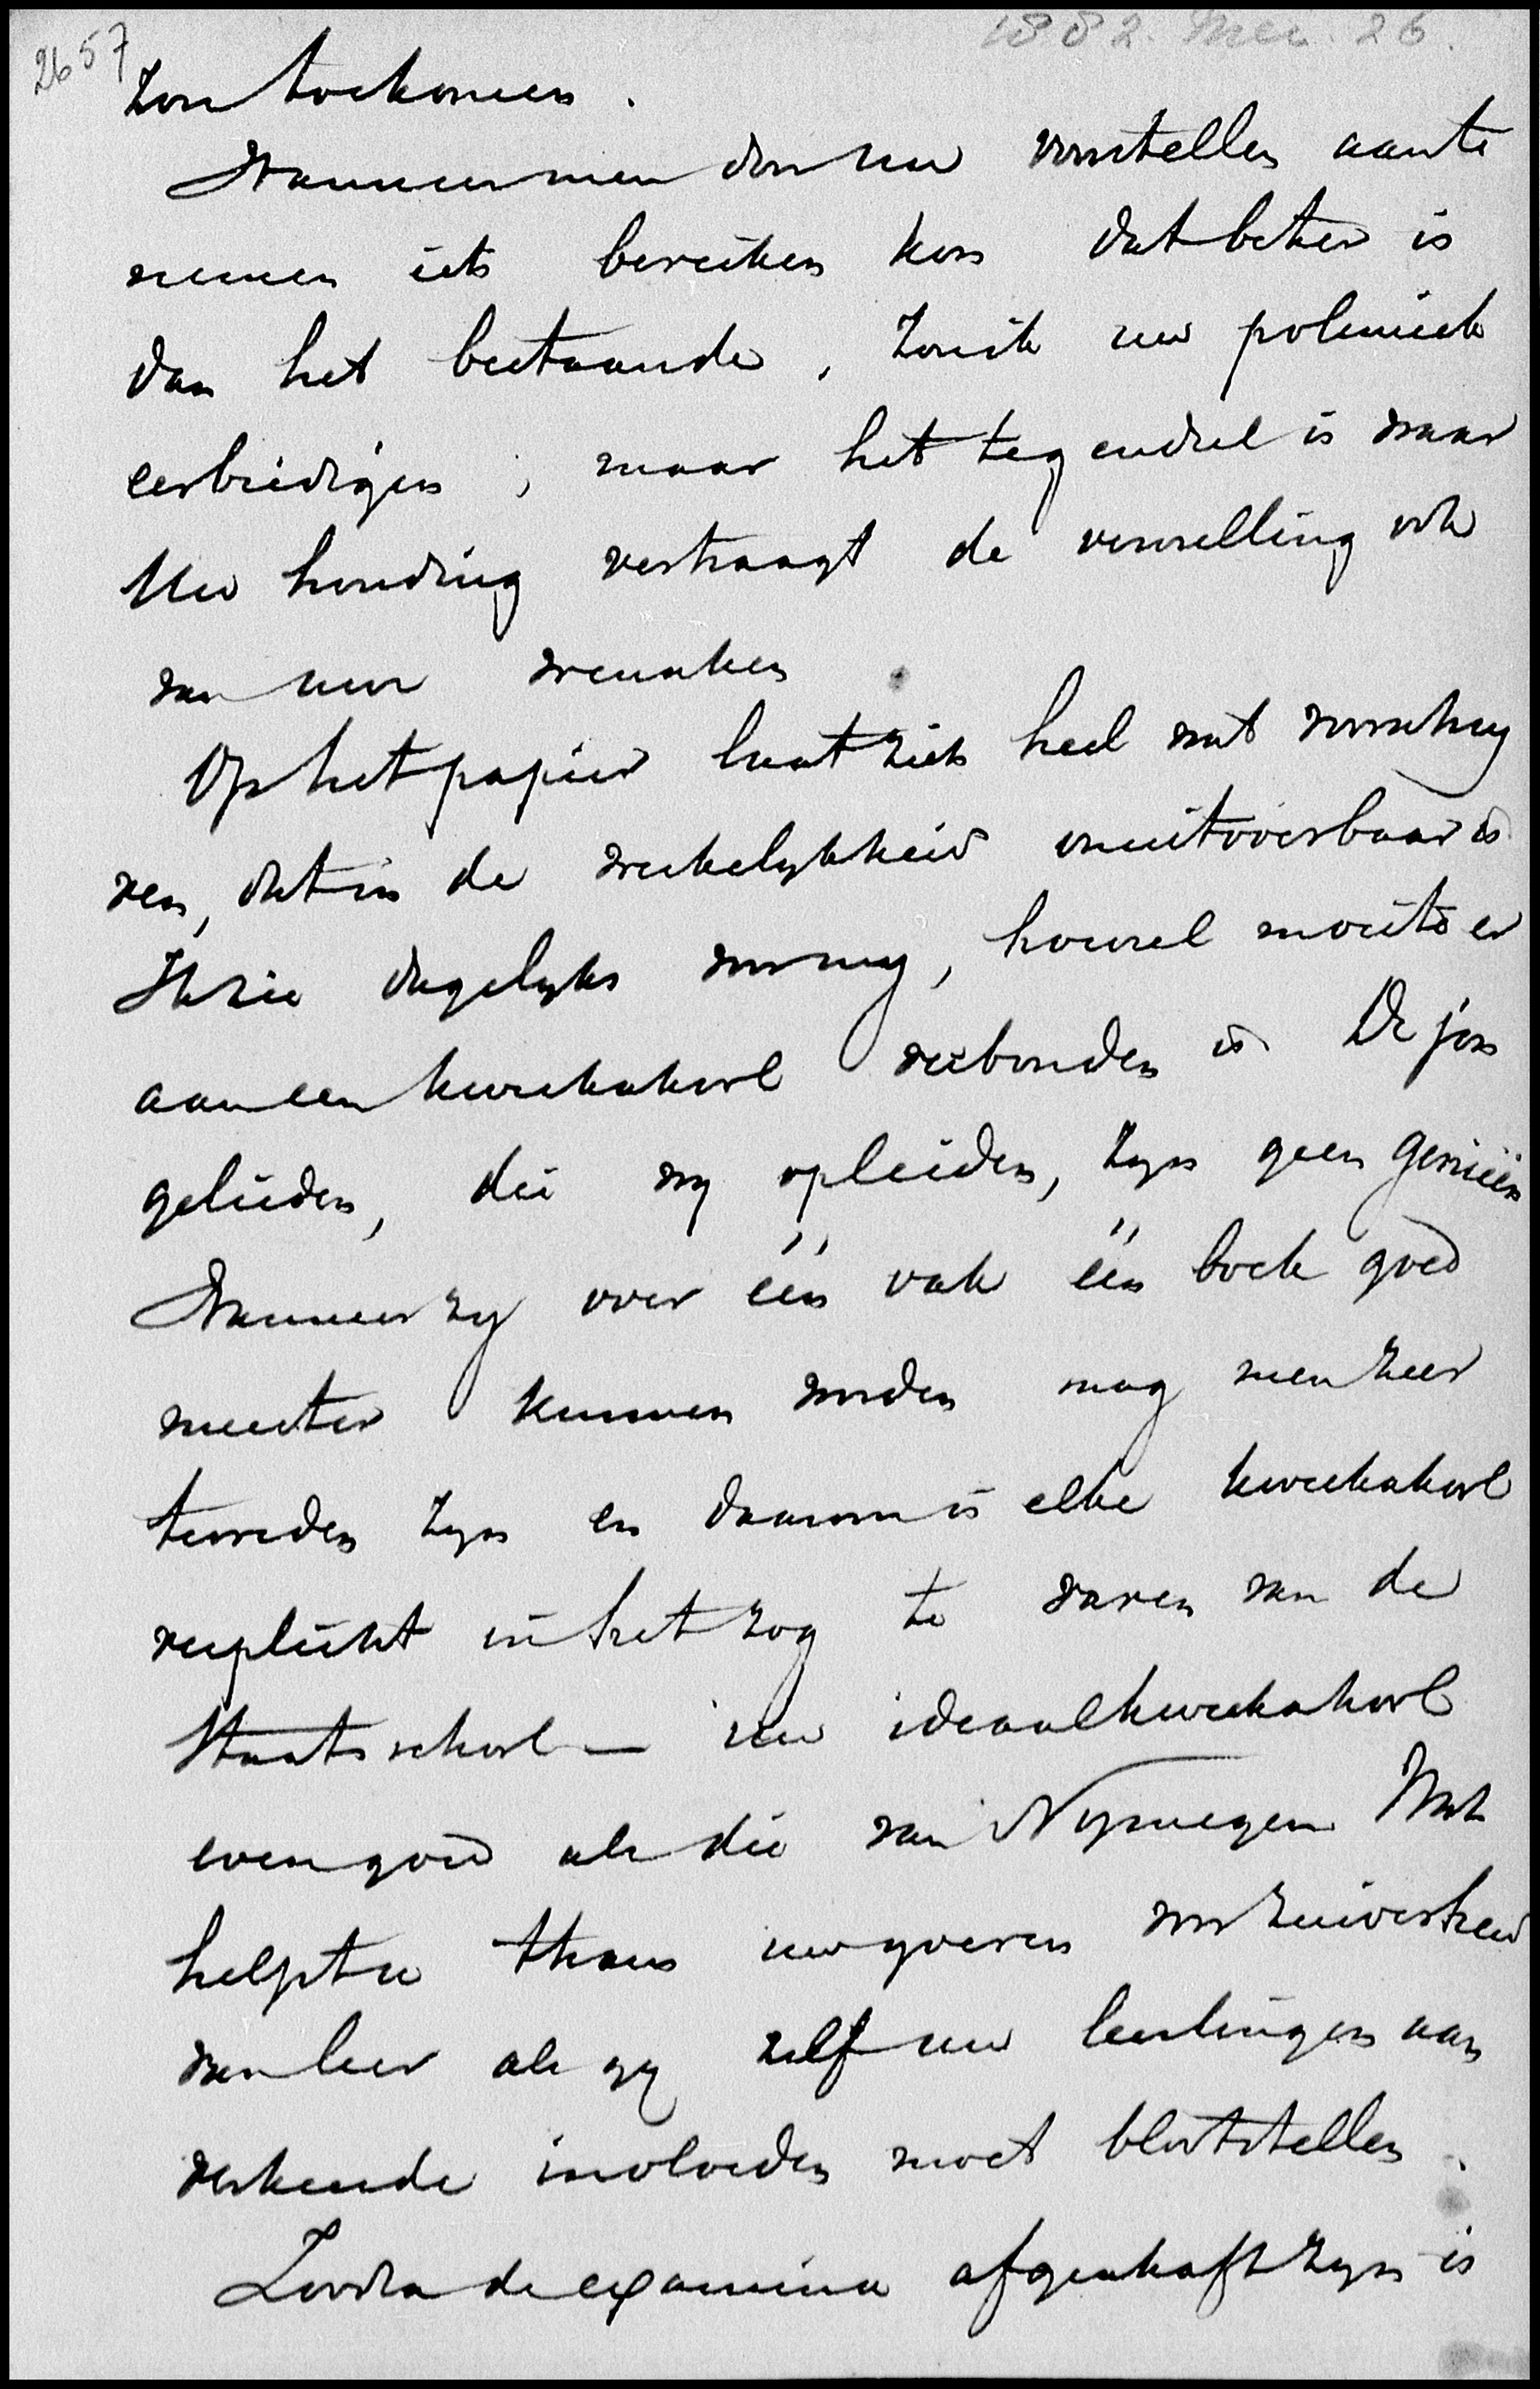 2657
1882. Mei. 26.
zou toekomen.
Wanneer men door uw voorstellen aan te
nemen iets bereiken kon dat beter is
dan het bestaande, zou ik uw polemiek
eerbiedigen; maar het tegendeel is waar
Uw houding vertraagt de vervulling ook
van uw wenschen
Op het papier laat zich heel wat voorschrij
ven, dat in de werkelykheid onuitvoerbaar is
Ik zie dagelyks voor my, hoeveel moeite er
aan een kweekschool verbonden is De jon
gelieden, die wy opleiden, zyn geen genieën
Wanneer zy over één vak één boek goed
meester kunnen worden mag men zeer
tevreden zyn en daarom is elke kweekschool
verplicht in het zog te varen van de
Staatsschool — uw ideaalkweekschool
evengoed als die van Nymegen Wat
helpt u thans uw yveren voor zuiverheid
van leer als gy zelf uw leerlingen aan
verkeerde invloeden moet blootstellen.
Zoodra de examina afgeschaft zyn is